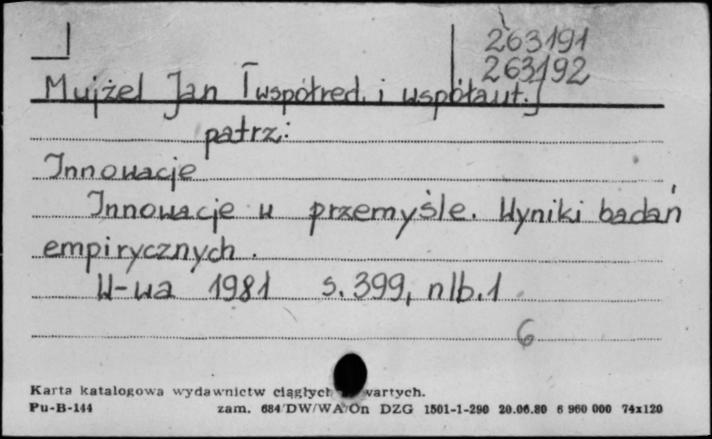 263191
263192
Mujżel Jan [współred. i współaut.]
patrz:
Innowacje
Innowacje w przemyśle. Wyniki badań
empirycznych.
W-wa 1981 s. 399, nlb. 1
6
Karta katalogowa wydawnictw ciągłych wartych.
Pu-B-144 zam. 684/DW/WA/On DZG 1501-1-290 20.06.80 6 960 000 74x120